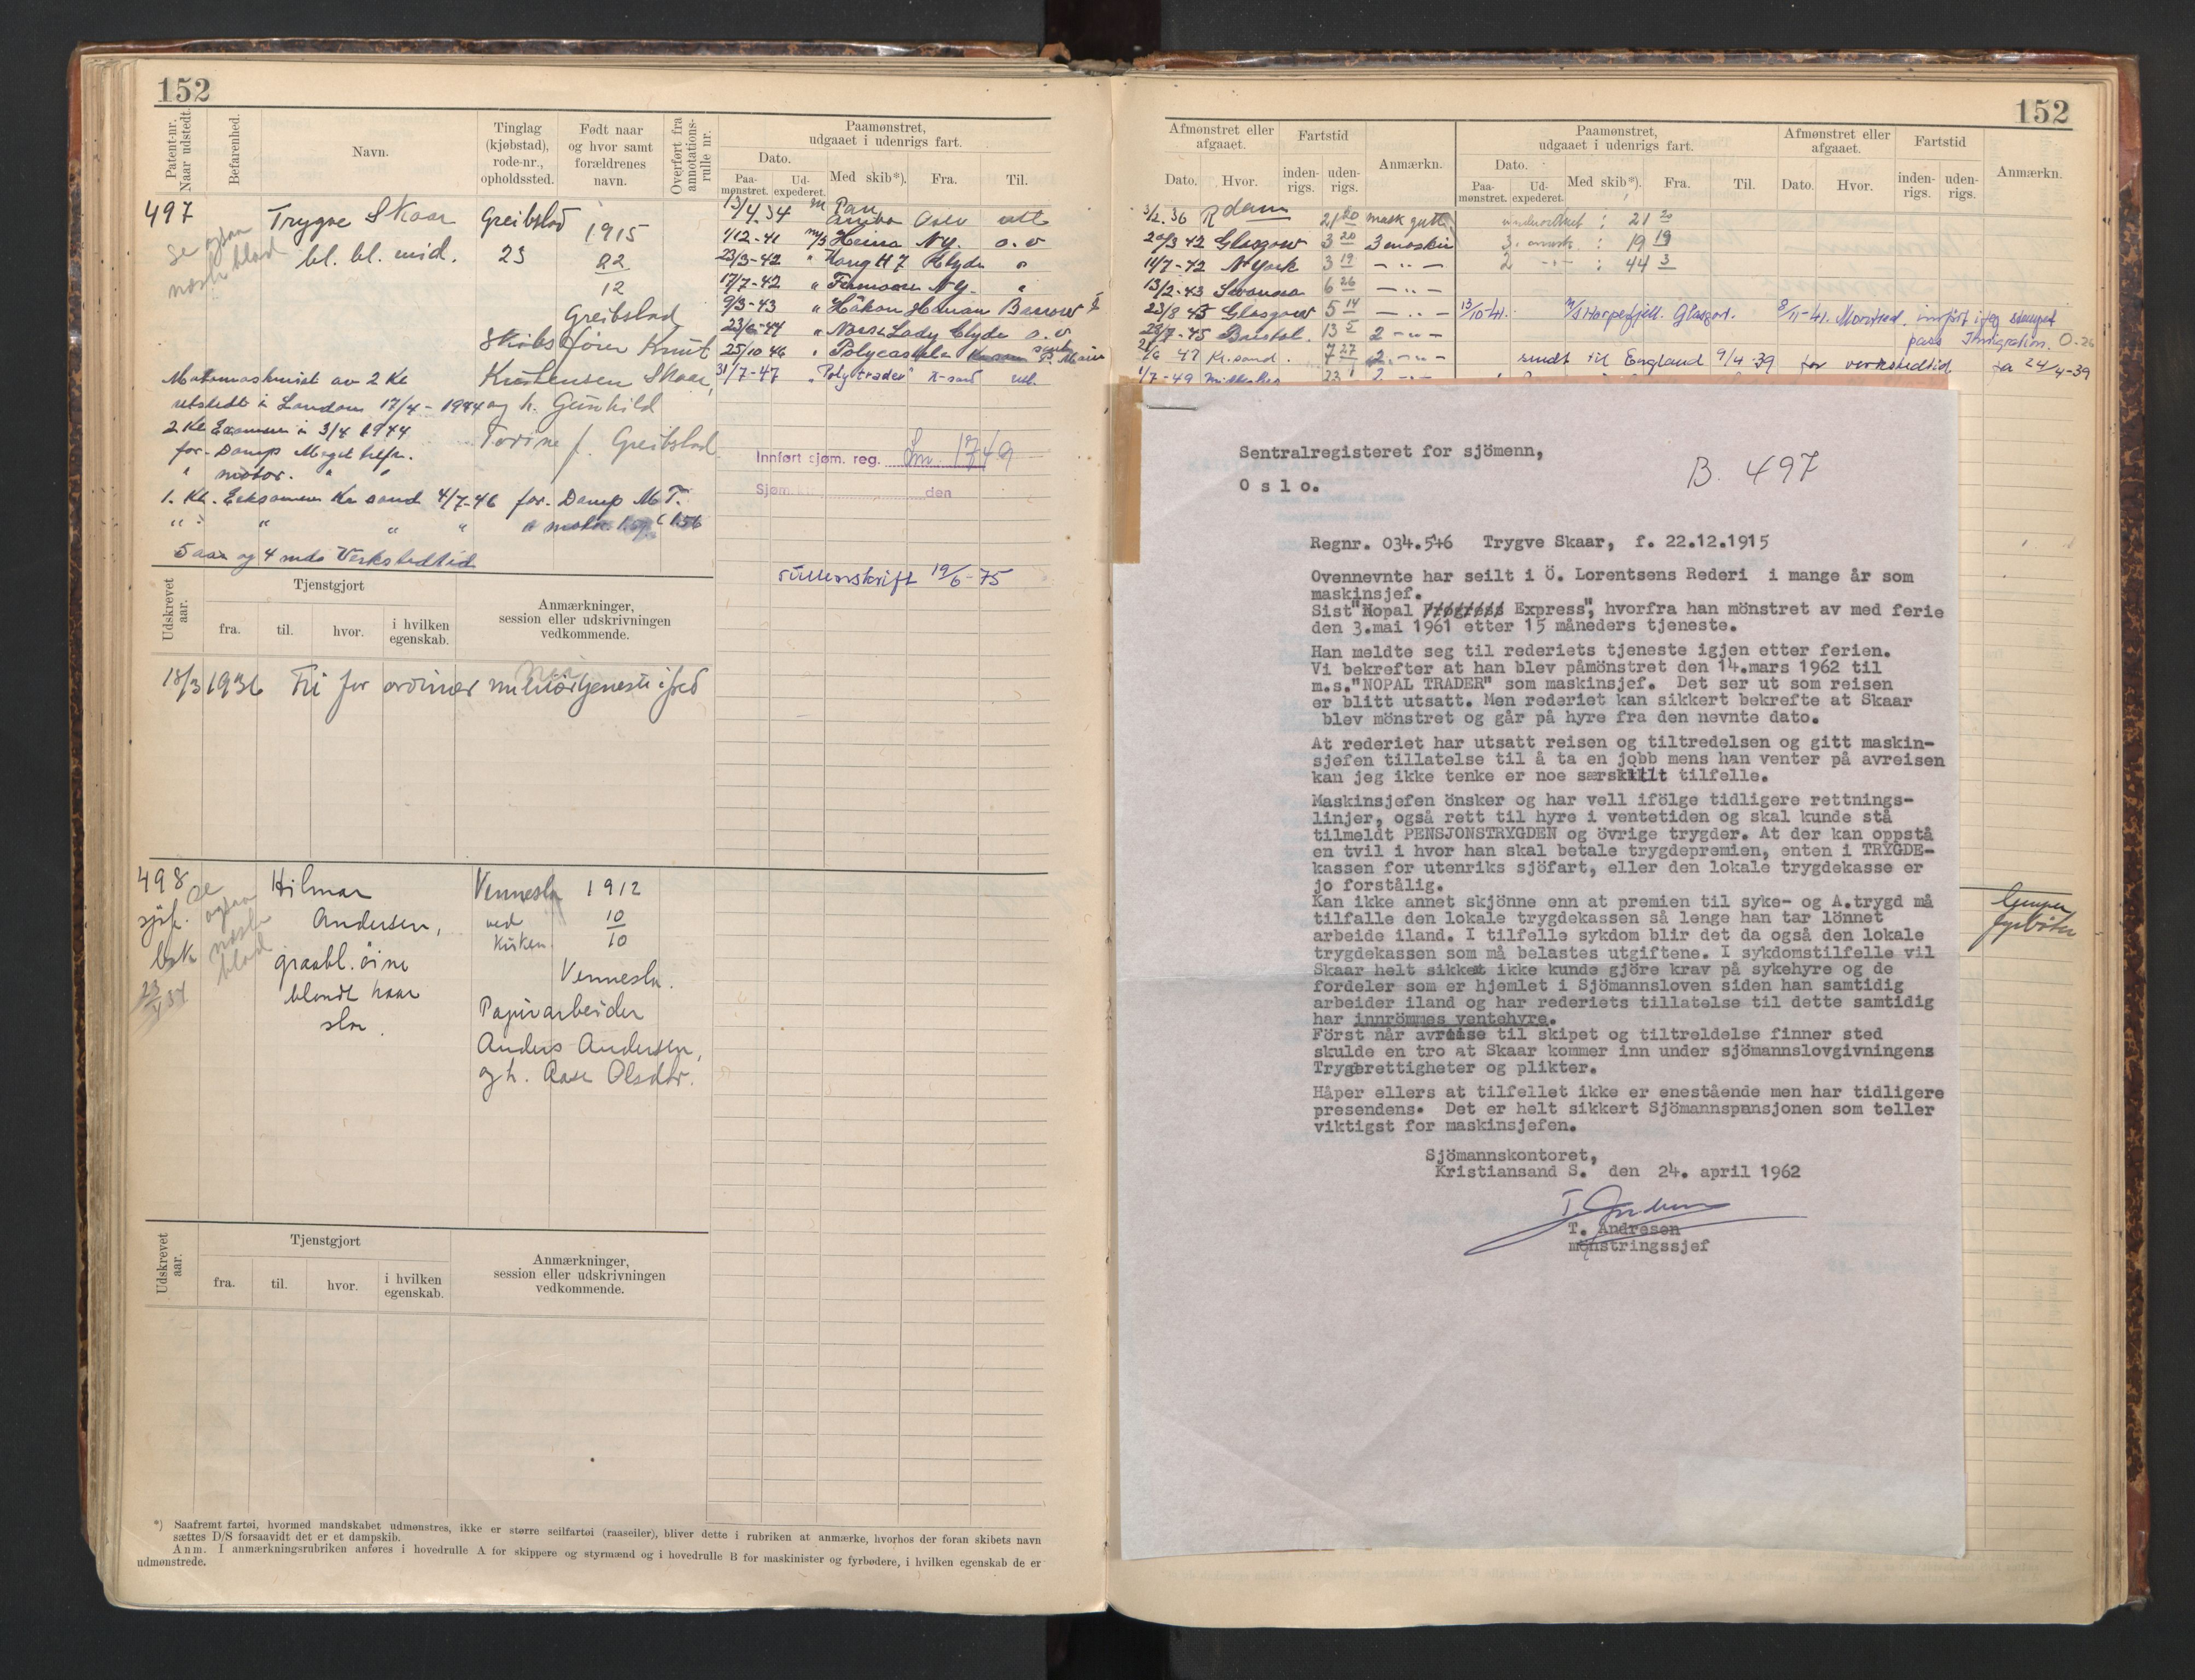 152
Patent-nr. Naar udstedt.
Befarenhed.
Navn.
Tinglag (kjøbstad), rode-nr., opholdssted.
Født naar og hvor samt forældrenes navn.
Overført fra annotations-rulle nr.
Paamønstret, udgaaet i udenrigs fart.
Dato.
Paa-mønstret.
Ud-expederet.
Med skib*).
Fra.
Til.
497 Trygve Skaar Greibslad 1915
Se ogsaa næste blad
bl. bl. mid. 23 22
12
Greibslad
Skibsfører Knut
Kristensen Skaar,
og h. Gunhild
Torine f. Greibslad
Motormaskinist av 2 Kl
utstedt i London 17/4 - 1944
2 Kl Examen i 3/4 1944
for Damp Meget tilfr.
" motor. " "
1. Kl. Eeksamen Kr sand 4/7-46 for Damp M T.
5 aar og 4 mds Verkstedtid
13/4 34 m Oslo
1/12-41 m/s Heina N.Y. o.v
23/3-42 " Kong H 7 Clyde "
17/7-42 " N.Y. "
9/3-43 " Håkon Barrow
23/6-44 " Norse Lady Clyde o.v
25/10 46 " Polycastle
31/7-47 " "Polytrader" K-sand
Innført sjøm. reg. 1749
Sjøm. den
rulleavskrift 19/6-75
Udskrevet aar.
Tjenstgjort
fra.
til.
hvor.
i hvilken egenskab.
Anmærkninger, session eller udskrivningen vedkommende.
18/3 1936 Fri for ordinær militærtjeneste i fred
498 Hilmar Vennesla 1912
se ogsaa næste blad
sjøf. Andersen, ved 10
Kirken 10
graabl. öine Vennesla.
blondt haar Papirarbeider
Anders Andersen,
og h. Aase Olsdtr.
Udskrevet aar.
Tjenstgjort
fra.
til.
hvor.
i hvilken egenskab.
Anmærkninger, session eller udskrivningen vedkommende.
*) Saafremt fartøi, hvormed mandskabet udmønstres, ikke er større seilfartøi (raaseiler), bliver dette i rubriken at anmærke, hvorhos der foran skibets navn
sættes D/S forsaavidt det er et dampskib.
Anm. I anmærkningsrubriken anføres i hovedrulle A for skippere og styrmænd og i hovedrulle B for maskinister og fyrbødere, i hvilken egenskab de er
udmønstrede.
152
Afmønstret eller afgaaet.
Dato.
Hvor.
Fartstid
inden-rigs.
uden-rigs.
Anmærkn.
Paamønstret, udgaaet i udenrigs fart.
Dato.
Paa-mønstret.
Ud-expederet.
Med skib*).
Fra.
Til.
Afmønstret eller afgaaet.
Dato.
Hvor.
Fartstid
inden-rigs.
uden-rigs.
Anmærkn.
3/2.36 Rdam 21 20 mask gutt
20/3 42 Glasgow 3 20 3 maskin 3. mask : 19 19
14/7-42 N York 3 19 2 : 44 3
13/2-43 Swansea 6 26
23/8 43 Glasgow 5 14
13/10-41. Glasgow. 8/11-41. Montreal.
23/7-45 Bristol. 13 2
pass Imigration.
/6 47 Kr.sand. 7 27 2
sendt til England 9/4-39 for verkstedtid fra 24/4-39
/7-49
Sentralregisteret for sjömenn,
O s l o.
B. 497
Regnr. 034.546 Trygve Skaar, f. 22.12.1915
Ovennevnte har seilt i Ö. Lorentsens Rederi i mange år som
maskinsjef.
Sist "Nopal Express", hvorfra han mönstret av med ferie
den 3.mai 1961 etter 15 måneders tjeneste.
Han meldte seg til rederiets tjeneste igjen etter ferien.
Vi bekrefter at han blev påmönstret den 14.mars 1962 til
m.s."NOPAL TRADER" som maskinsjef. Det ser ut som reisen
er blitt utsatt. Men rederiet kan sikkert bekrefte at Skaar
blev mönstret og går på hyre fra den nevnte dato.
At rederiet har utsatt reisen og tiltredelsen og gitt maskin-
sjefen tillatelse til å ta en jobb mens han venter på avreisen
kan jeg ikke tenke er noe særskillt tilfelle.
Maskinsjefen önsker og har vell ifölge tidligere rettnings-
linjer, også rett til hyre i ventetiden og skal kunde stå
tilmeldt PENSJONSTRYGDEN og övrige trygder. At der kan oppstå
en tvil i hvor han skal betale trygdepremien, enten i TRYGDE-
kassen for utenriks sjöfart, eller den lokale trygdekasse er
jo forstålig.
Kan ikke annet skjönne enn at premien til syke- og A.trygd må
tilfalle den lokale trygdekassen så lenge han tar lönnet
arbeide iland. I tilfelle sykdom blir det da også den lokale
trygdekassen som må belastes utgiftene. I sykdomstilfelle vil
Skaar helt sikket ikke kunde gjöre krav på sykehyre og de
fordeler som er hjemlet i Sjömannsloven siden han samtidig
arbeider iland og har rederiets tillatelse til dette samtidig
har innrömmes ventehyre.
Först når avreise til skipet og tiltreldelse finner sted
skulde en tro at Skaar kommer inn under sjömannslovgivningens
Trygderettigheter og plikter.
Håper ellers at tilfellet ikke er enestående men har tidligere
presendens. Det er helt sikkert Sjömannspensjonen som teller
viktigst for maskinsjefen.
Sjömannskontoret,
Kristiansand S. den 24. april 1962
T. Andresen
mönstringssjef